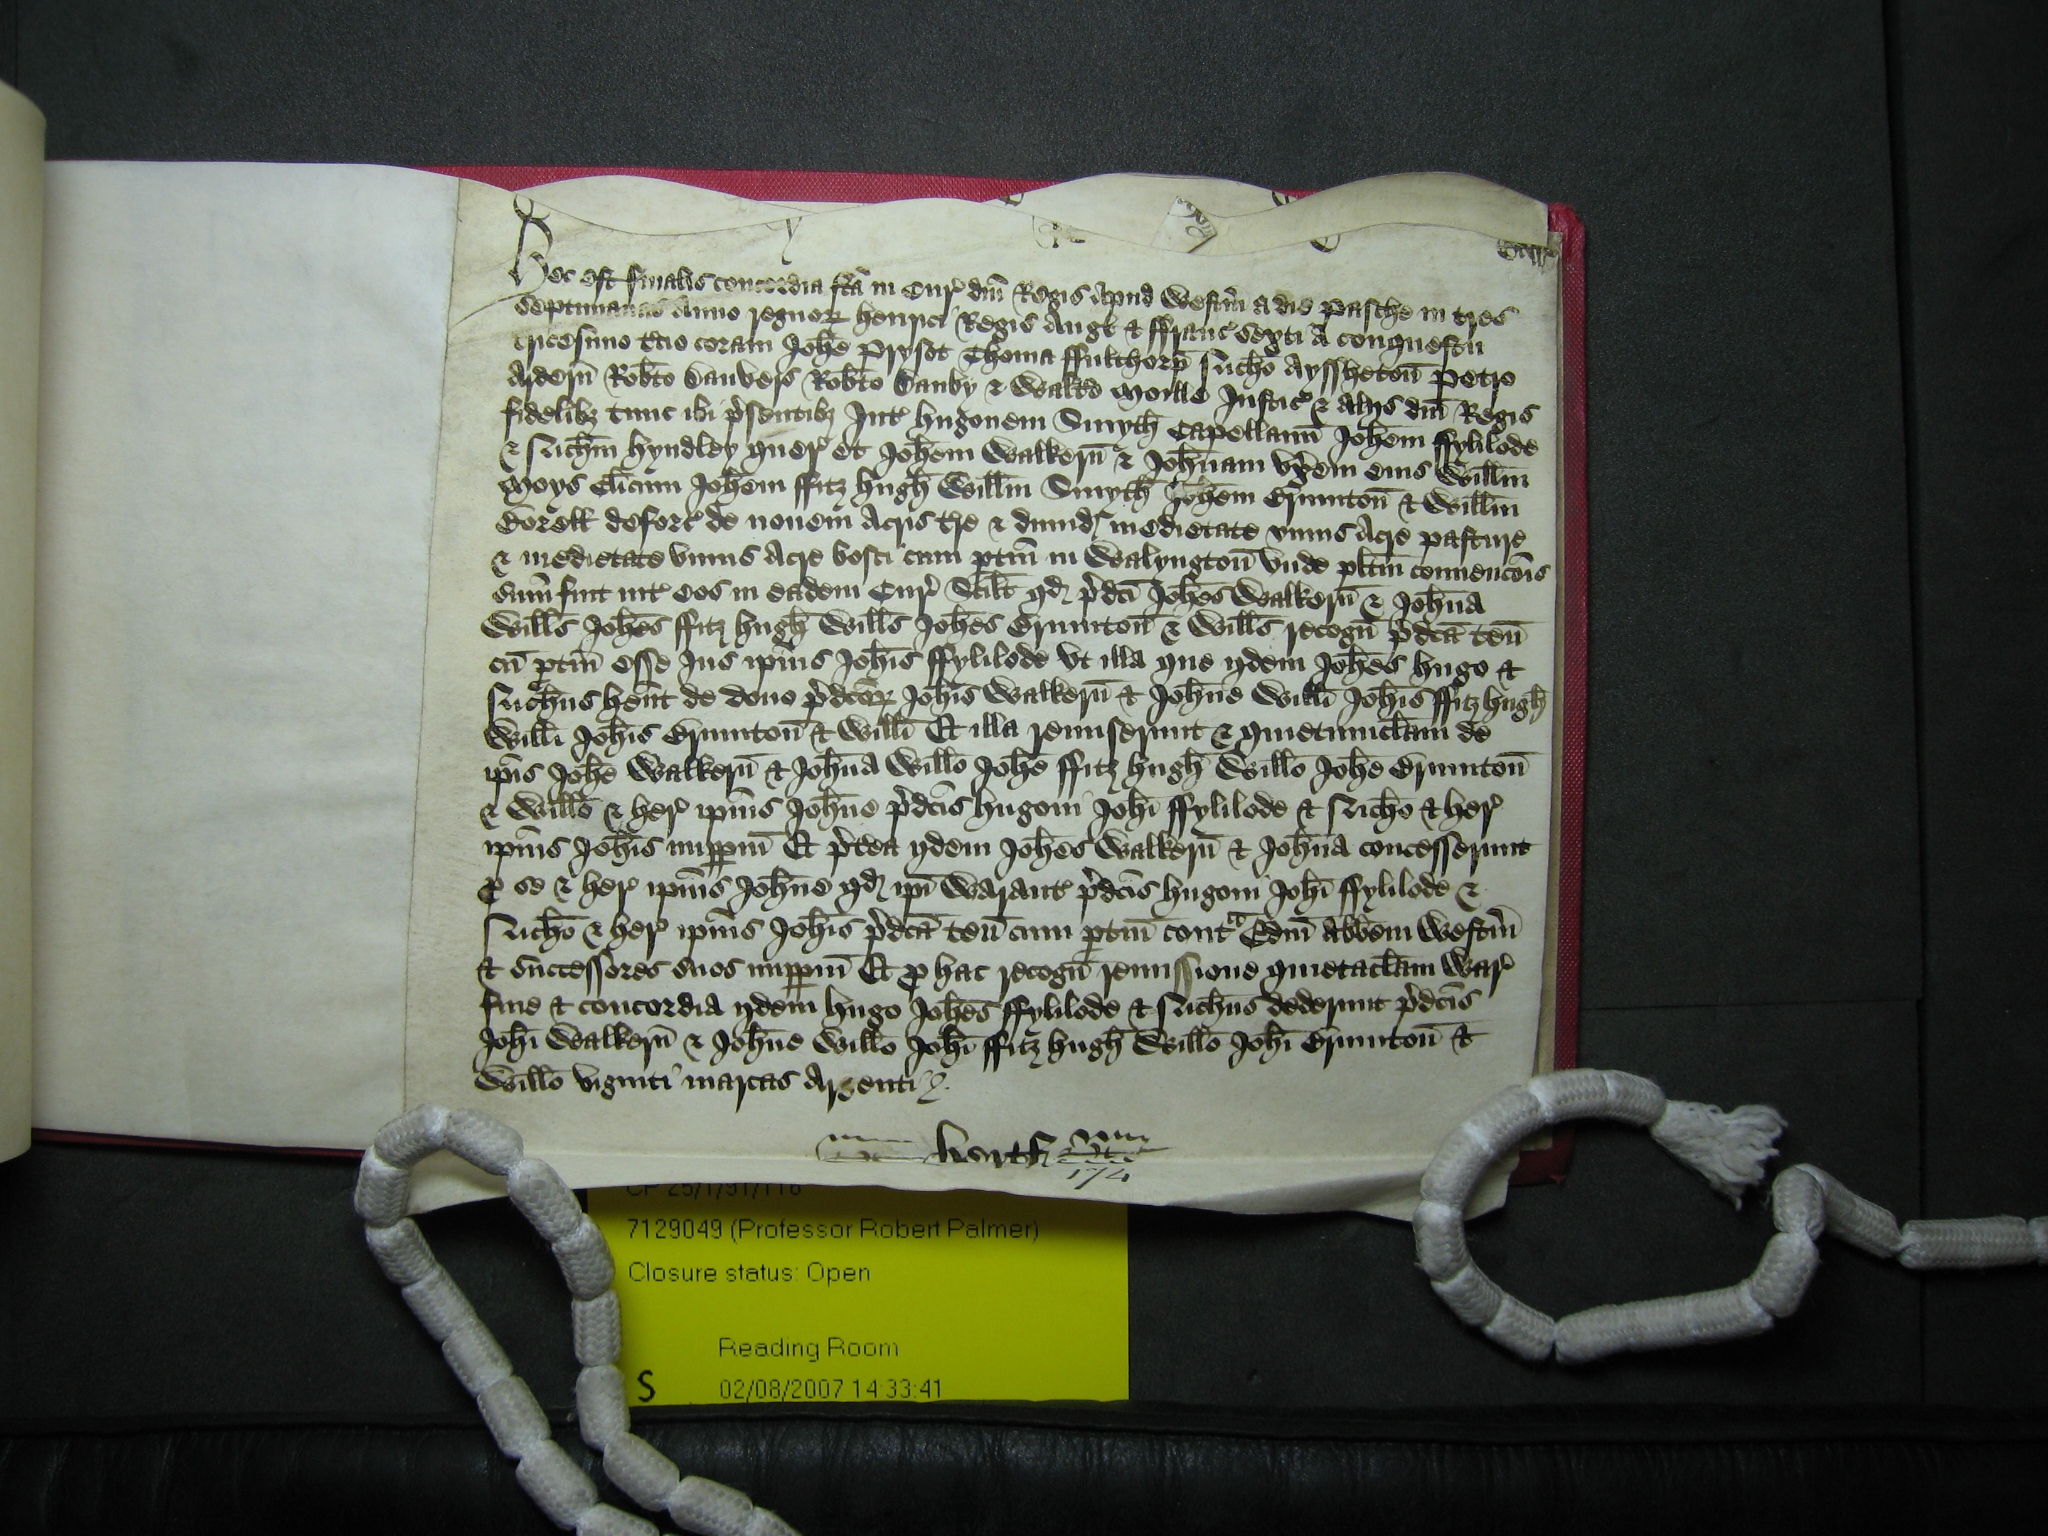 Hec est finalis concordia fc̄a in Cur̉ dn̄i Regis apud Westm̄ a die Pasche in tres
septimanas Anno regnoꝝ Henrici Regis Angl̄ & ffranc̉ sexti a conquestu
tricesimo t̄cio coram Joh̄e Prysot Thoma ffulthorp̄ Nich̄o Ayssheton̄ Petro
Ardern̄ Rob̄to Danvers Rob̄to Danby & Walt̄o Moille Justic̉ & aliis dn̄i Regis
fidelibȝ tunc ibi p̉sentibȝ Int̉ Hugonem Smyth̄ Capellanū Joh̄em ffylilode
& Nich̄m Hyndley quer̉ et Joh̄em Walkern̄ & Joh̄nam vx̉em eius Will̄m
Moys Cl̄icum Joh̄em ffitz hugh̄ Will̄m Smyth̄ Joh̄em Brunton̄ & Will̄m
Borell deforc̉ de novem acris t̄re & dimid̉ medietate vnius acre pasture
& medietate vnius acre bosci cum ptin̄ in Walyngton̄ vnde pl̄itm convenc̄ois
sum̄ fuit int̉ eos in eadem Cur̉ Scil̄t qd̉ p̉dc̄i Joh̄es Walkern̄ & Joh̄na
Will̄s Joh̄es ffitz hugh̄ Will̄s Joh̄es Brunton̄ & Will̄s recogn̄ p̉dc̄a ten̄
cū ptin̄ esse Jus ip̄ius Joh̄is ffylilode vt illa que ijdem Joh̄es Hugo &
Nich̄us hent̄ de dono p̉dc̄oꝝ Joh̄is Walkern̄ & Joh̄ne Will̄i Joh̄is ffitz hugh̄
Will̄i Joh̄is Brunton̄ & Will̄i Et illa remiserunt & quietumclam̄ de
ip̄is Joh̄e Walkern̄ & Joh̄na Will̄o Joh̄e ffitz hugh̄ Will̄o Joh̄e Brunton̄
& Will̄o & her̉ ip̄ius Joh̄ne p̉dc̄is Hugoni Joh̄i ffylilode & Nich̄o & her̉
ip̄ius Joh̄is imppm̄ Et p̉terea ijdem Joh̄es Walkern̄ & Joh̄na concesserunt
ꝓ se & her̉ ip̄ius Joh̄ne qd̉ ip̄i Warant̉ p̉dc̄is Hugoni Joh̄i ffylilode &
Nich̄o & her̉ ip̄ius Joh̄is p̉dc̄a ten̄ cum ptin̄ cont̉ Edm̄ Abb̄em Westm̄
& successores suos imppm̄ Et ꝓ hac recogn̄ remissione quietaclam̄ War̉
fine & concordia ijdem Hugo Joh̄es ffylilode & Nich̄us dederunt p̉dc̄is
Joh̄i Walkern̄ & Joh̄ne Will̄o Joh̄i ffitz hugh̄ Will̄o Joh̄i Brunton̄ &
Will̄o viginti marcas Argenti
hertf̄
174
CP 25/1/91/116
7129049 (Professor Robert Palmer)
Closure status: Open
Reading Room
S 02/08/2007 14:33:41